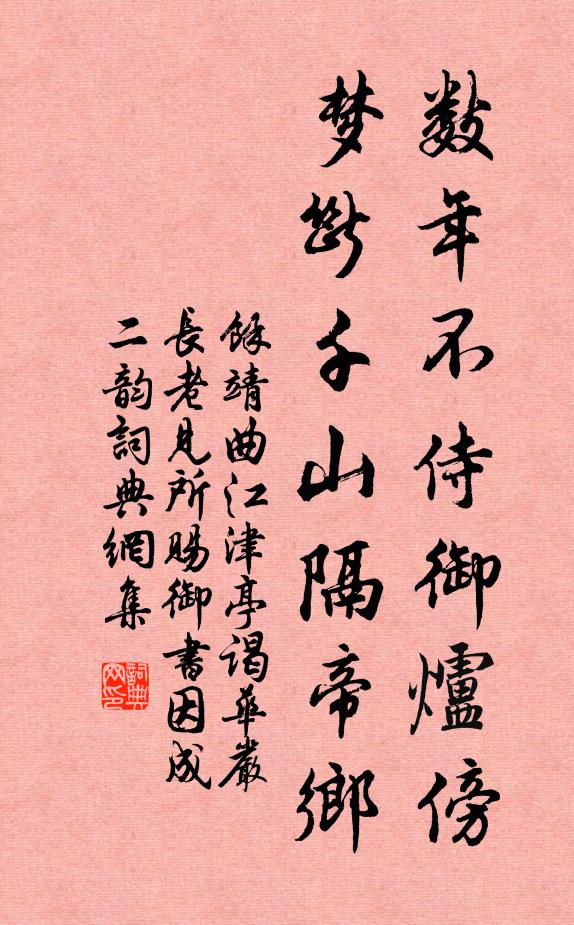 數年不侍御爐傍
夢斷千山隔帝鄉
餘靖曲江津亭謁華嚴
長老見所賜御書因成
二韵詞典網集
詞典網印